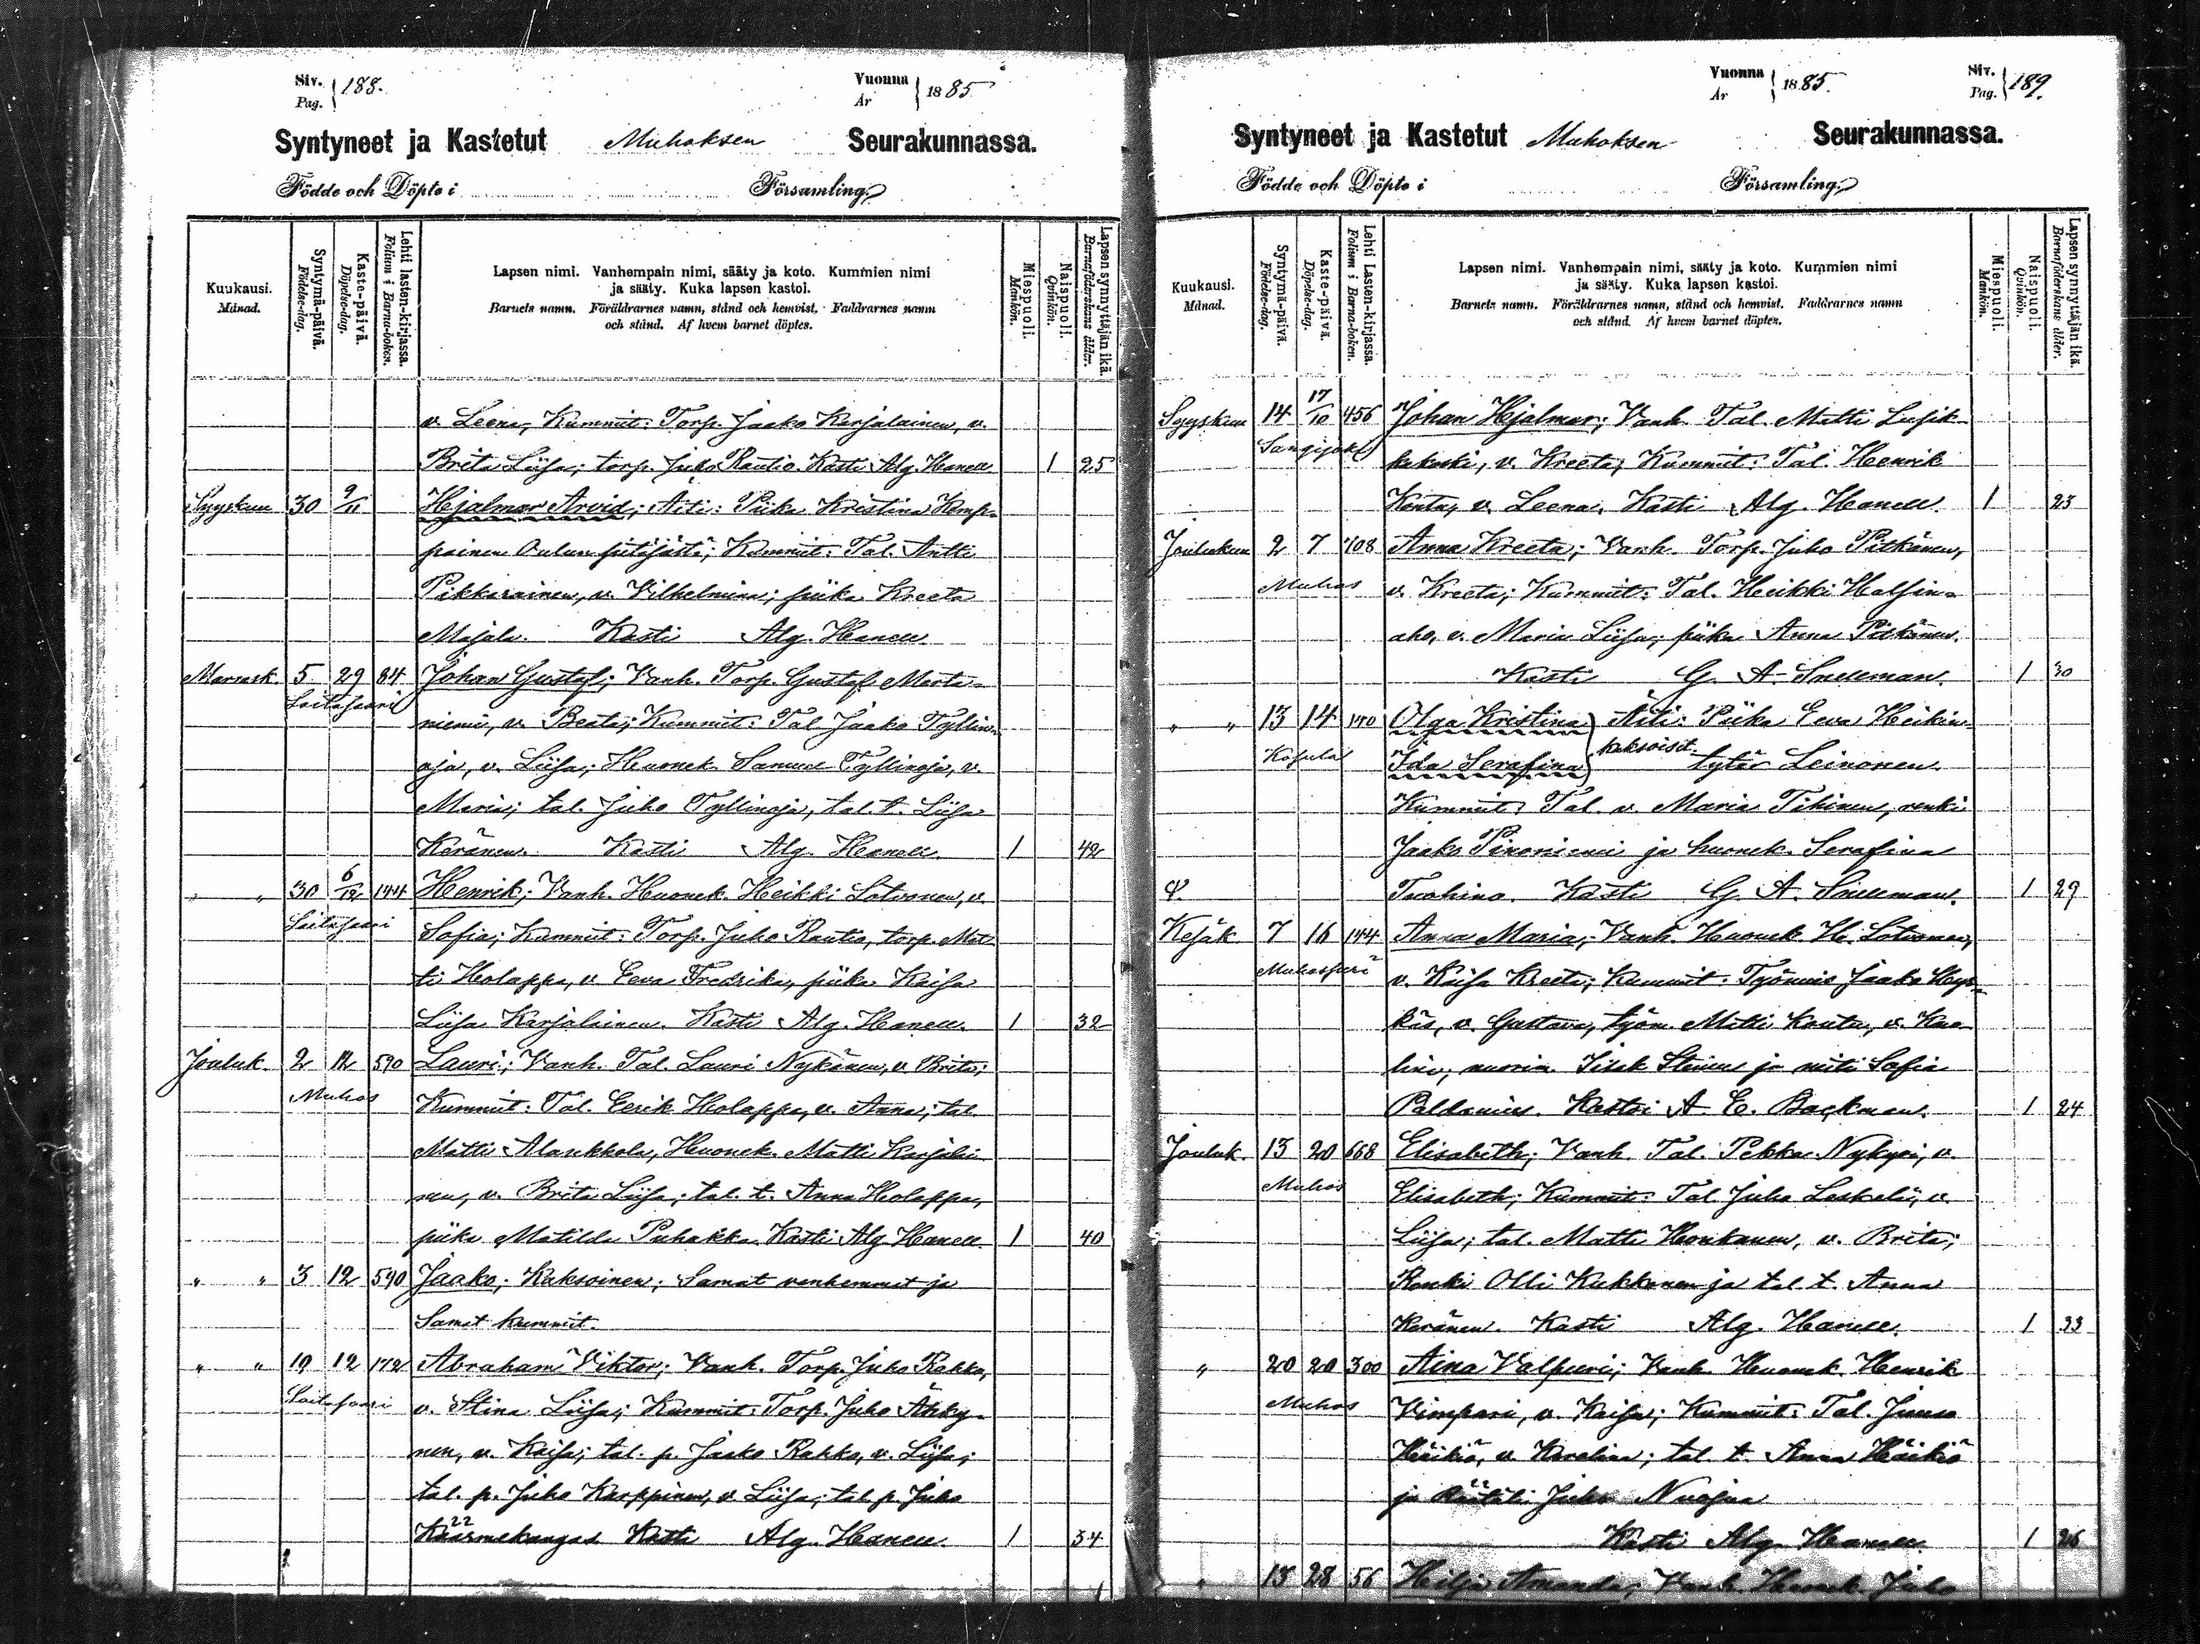 Siv. Pag. 188.
Vuonna År 1885
Syntyneet ja Kastetut Muhoksen Seurakunnassa.
Födde och Döpte i Församling.
Kuukausi. Månad.
Syntymä-päivä. Födelse-dag.
Kaste-päivä. Döpelse-dag.
Lehti lasten-kirjassa. Folium i Barna-boken.
Lapsen nimi. Vanhempain nimi, sääty ja koto. Kummien nimi
ja sääty. Kuka lapsen kastoi.
Barnets namn. Föräldrarnes namn, stånd och hemvist. Faddrarnes namn
och stånd. Af hvem barnet döptes.
Miespuoli. Mankön.
Naispuoli. Qvinkön.
Lapsen synnyttäjän ikä. Barnaföderskans ålder.
v. Leena, Kummit: Torp. Jaako Karjalainen, v.
Brita Liisa; torp. Juho Rautio. Kasti Alg. Hanell 1 25
Syyskuu 30 9/11 Hjalmar Arvid; Äiti: Piika Kristina Kemp-
painen Oulun pitäjästä; Kummit: Tal. Antti
Pikkarainen, v. Vilhelmina; piika Kreeta
Majala. Kasti Alg. Hanell.
Marrask. 5 29 84 Johan Gustaf; Vanh. Torp. Gustaf Marta-
Laitasaari
niemi, v. Beata; Kummit: Tal Jaako Tyllin-
oja, v. Liisa; Huonek. Samuel Tyllinoja, v.
Maria; tal. Juho Tyllinoja, tal. t. Liisa
Keränen. Kasti Alg. Hanell. 1 42
" " 30 6/12 144 Henrik; Vanh. Huonek. Heikki Lotvonen, v.
Laitasaari
Sofia; Kummit: Torp. Juho Rautio, torp. Mat-
ti Holappa, v. Eeva Fredrika, piika Kaisa
Liisa Karjalainen. Kasti Alg. Hanell. 1 32
Jouluk. 2 12 590 Lauri; Vanh. Tal. Lauri Nykänen, v. Brita;
Muhos
Kummit: Tal. Eerik Holappa, v. Anna; tal.
Matti Alankkola, Huonek. Matti Karjalai-
nen, v. Brita Liisa; tal. t. Anna Holappa,
piika Matilda Puhakka. Kasti Alg. Hanell. 1 40
" " 3 12 590 Jaako; Kaksoinen; Samat vanhemmat ja
Samat kummit.
" " 19 12 172 Abraham Viktor; Vanh. Torp. Juho Rakko,
Laitasaari
v. Stina Liisa; Kummit: Torp. Juho Ähky-
nen, v. Kaisa; tal. p. Jaako Rakko, v. Liisa;
tal. p. Juho Karppinen, v. Liisa; tal. p. Juho
Käärmekangas Kasti Alg. Hanell. 1 34
Vuonna År 1885.
Siv. Pag. 189.
Syntyneet ja Kastetut Muhoksen Seurakunnassa.
Födde och Döpte i Församling.
Kuukausi. Månad.
Syntymä-päivä. Födelse-dag.
Kaste-päivä. Döpelse-dag.
Lehti Lasten-kirjassa. Folium i Barna-boken.
Lapsen nimi. Vanhempain nimi, sääty ja koto. Kummien nimi
ja sääty. Kuka lapsen kastoi.
Barnets namn. Föräldrarnes namn, stånd och hemvist. Faddrarnes namn
och stånd. Af hvem barnet döptes.
Miespuoli. Mankön.
Naispuoli. Qvinkön.
Lapsen synnyttäjän ikä. Barnaföderskans ålder.
Syyskuu 14 17/10 456 Johan Hjalmar; Vanh. Tal. Matti Lusik-
Sangijoki
kakoski, v. Kreeta; Kummit: Tal. Henrik
Konta, v. Leena. Kasti Alg. Hanell. 1 23
Joulukuu 2 7 708 Anna Kreeta; Vanh. Torp. Juho Pitkänen,
Muhos
v. Kreeta; Kummit: Tal. Heikki Halfin-
aho, v. Maria Liisa; piika Anna Pitkänen.
Kasti G. A. Snellman. 1 30
" " 13 14 170 Olga Kristina Äiti: Piika Eeva Heikin-
kaksoiset.
Ida Serafina tytär Leinonen.
Kummit: Tal. v. Maria Tihinen, renki
Jaako Pinoniemi ja huonek. Serafina
Tuohino. Kasti G. A. Snellman. 1 29
Kesäk 7 16 144 Anna Maria; Vanh. Huonek. H. Lotvonen,
v. Kaisa Kreeta; Kummit: Työmies Jaako Heys-
käs, v. Gustava, työm. Matti Konta, v. Kao-
lina, nuorim. Isak Stenius ja neiti Sofia
Paldanius. Kastoi A. E. Backman. 1 24
Jouluk. 13 20 668 Elisabeth; Vanh. Tal. Pekka Nykyri, v.
Muhos
Elisabeth; Kummit: Tal Juho Leskelä, v.
Liisa; tal. Matti Honkanen, v. Brita;
Renki Olli Kukkonen ja tal. t. Anna
Keränen. Kasti Alg. Hanell. 1 33
" 20 20 300 Aina Valpuri; Vanh. Huonek. Henrik
Muhos
Vimpari, v. Kaisa; Kummit: Tal. Junso
Häikiö, v. Karolina; tal. t. Anna Häikiö
ja Räätäli Juho Nuojua
Kasti Alg. Hanell. 1 26
" 13 28 56 Hilja Amanda; Vanh. Huonek. Juho